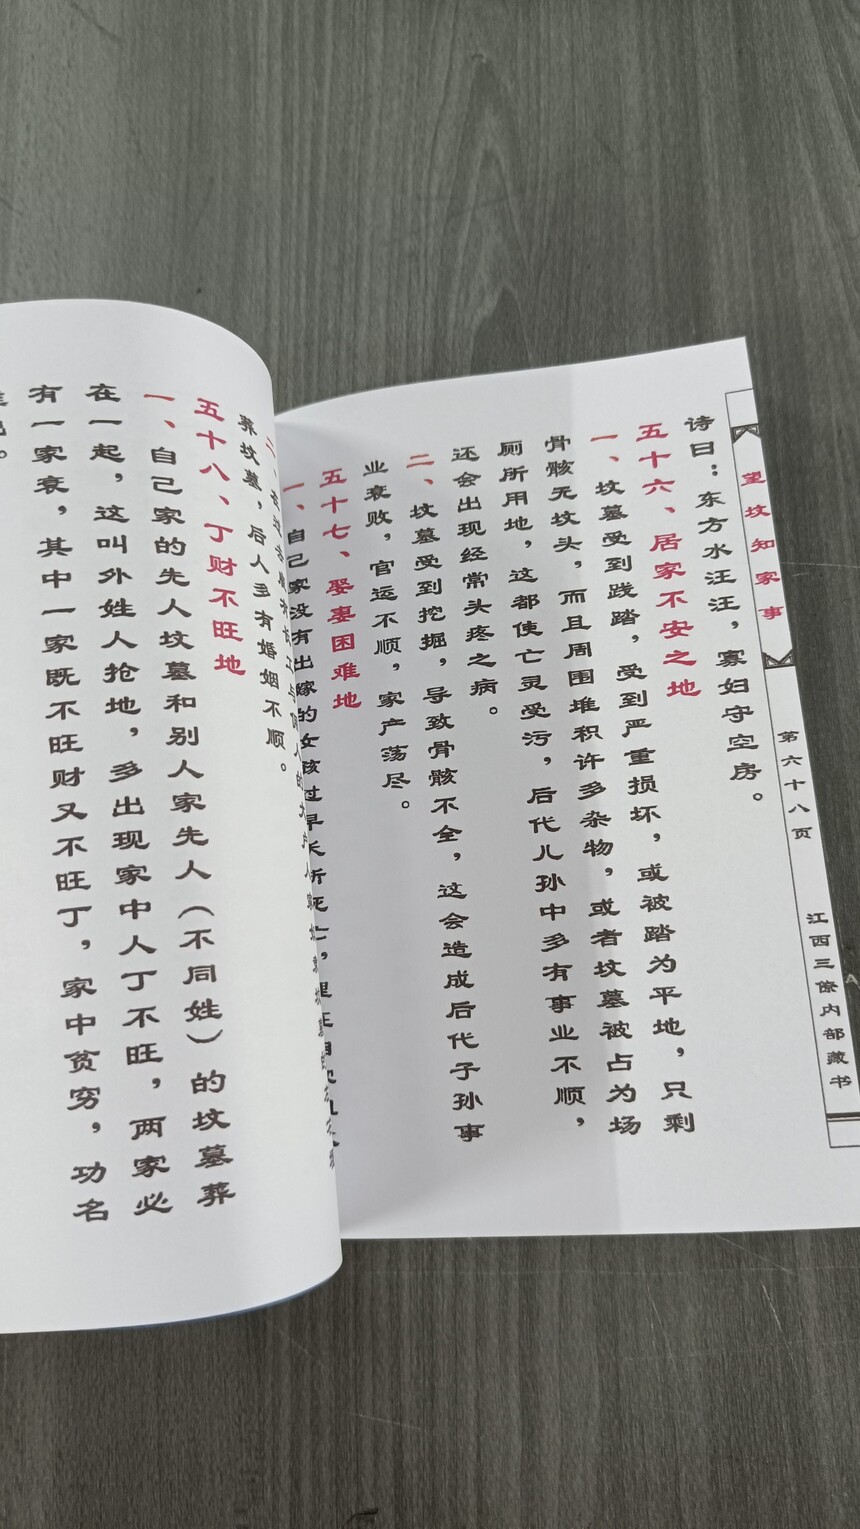 望坟知家事
第六十八页
江西三僚内部藏书
诗曰：东方水汪汪，寡妇守空房。
五十六、居家不安之地
一、坟墓受到践踏，受到严重损坏，或被踏为平地，只剩
骨骸无坟头，而且周围堆积许多杂物，或者坟墓被占为场
厕所用地，这都使亡灵受污，后代儿孙中多有事业不顺，
还会出现经常头疼之病。
二、坟墓受到挖掘，导致骨骸不全，这会造成后代子孙事
业衰败，官运不顺，家产荡尽。
五十七、娶妻困难地
一、自己家没有出嫁的女孩过早夭折死亡，埋在
葬坟墓，后人多有婚姻不顺。
五十八、丁财不旺地
一、自己家的先人坟墓和别人家先人（不同姓）的坟墓葬
在一起，这叫外姓人抢地，多出现家中人丁不旺，两家必
有一家衰，其中一家既不旺财又不旺丁，家中贫穷，功名